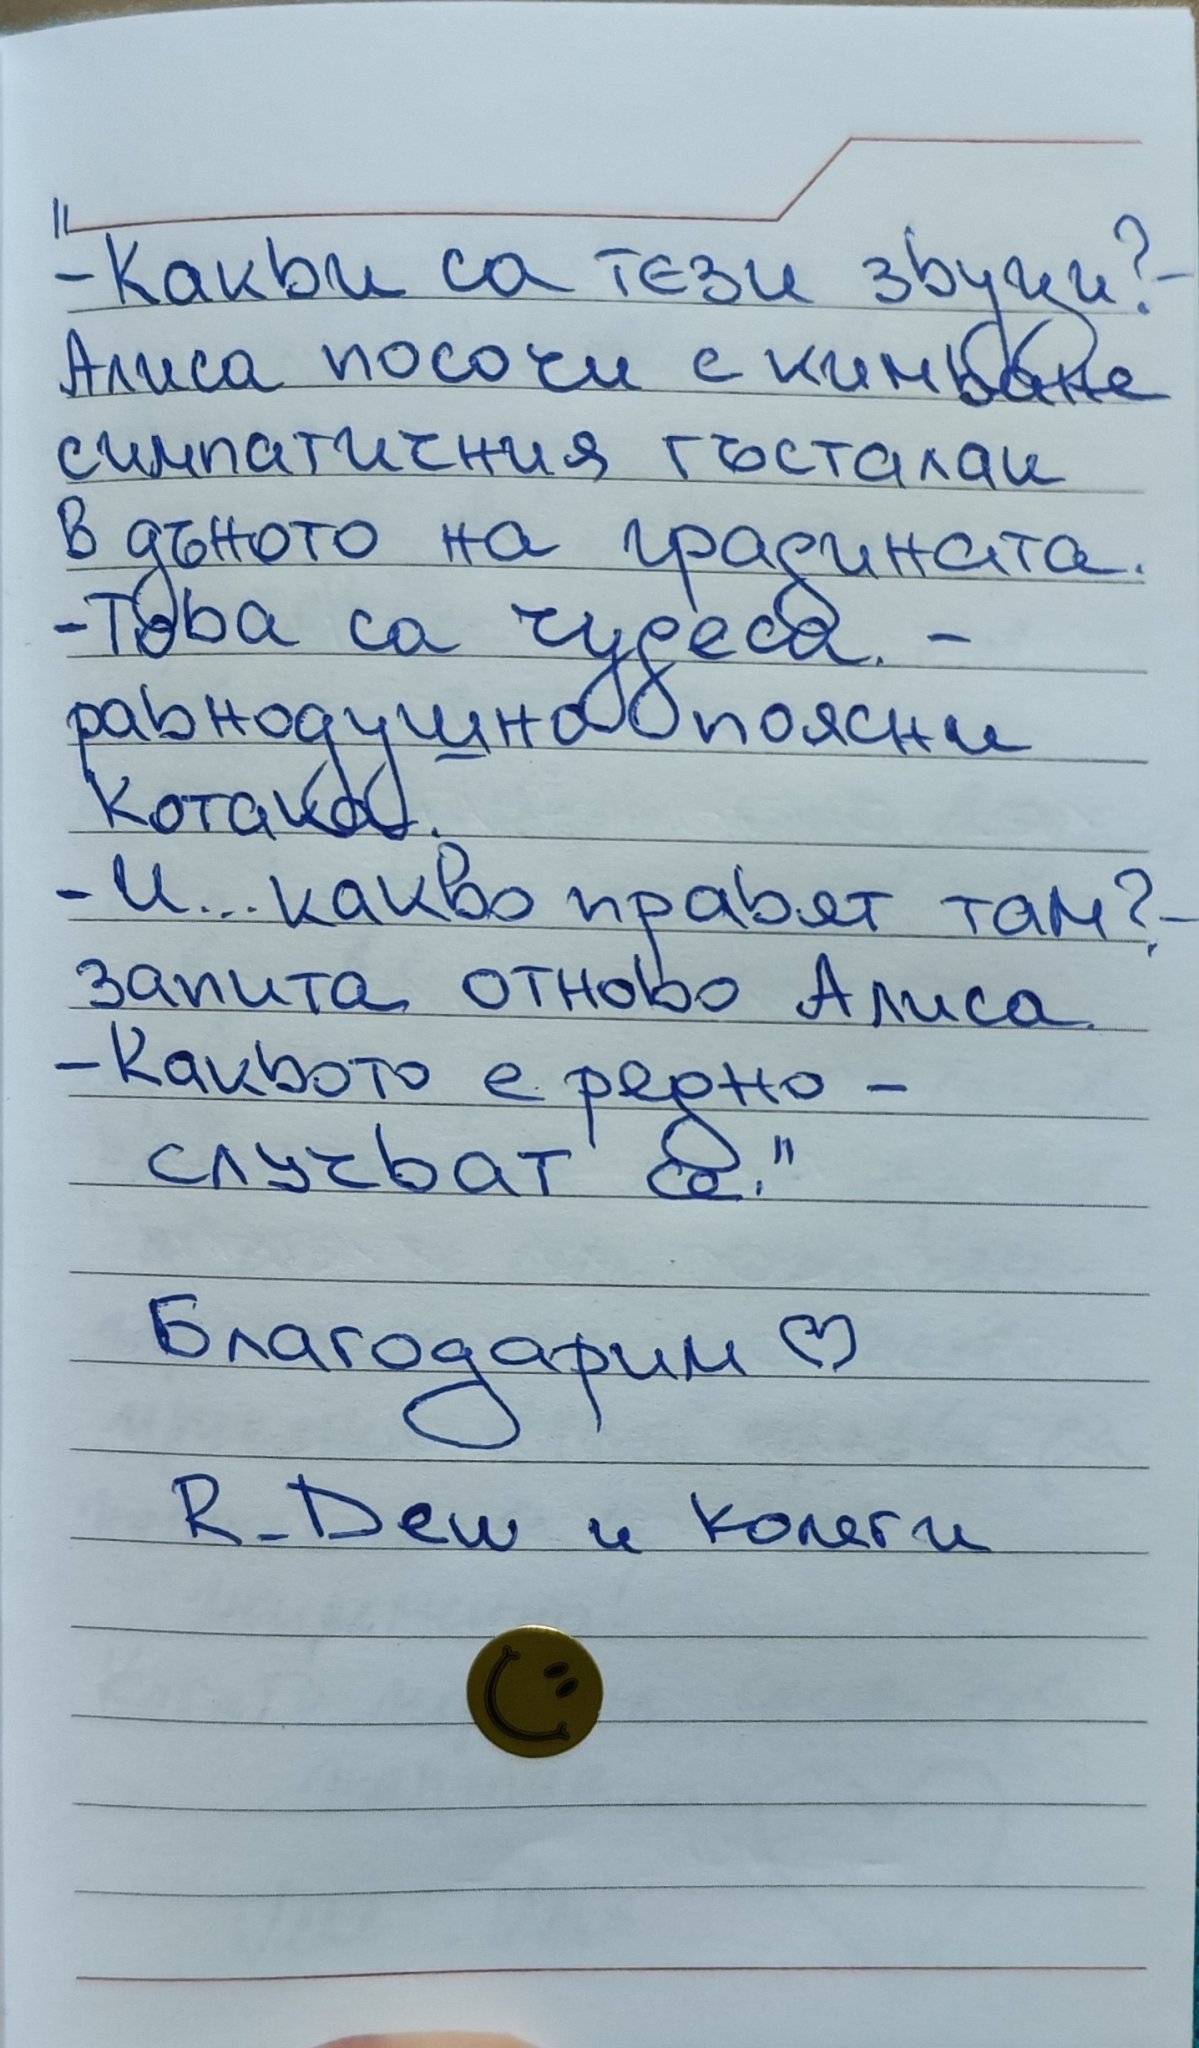 "
- Какви са тези звуци? -
Алиса посочи с кимване
симпатичния гъсталак
в дъното на градината.
- Това са чудеса. -
равнодушно поясни
Котака.
- И... какво правят там? -
запита отново Алиса.
- Каквото е редно -
случват се."
Благодарим ♡
R_Dew и колеги